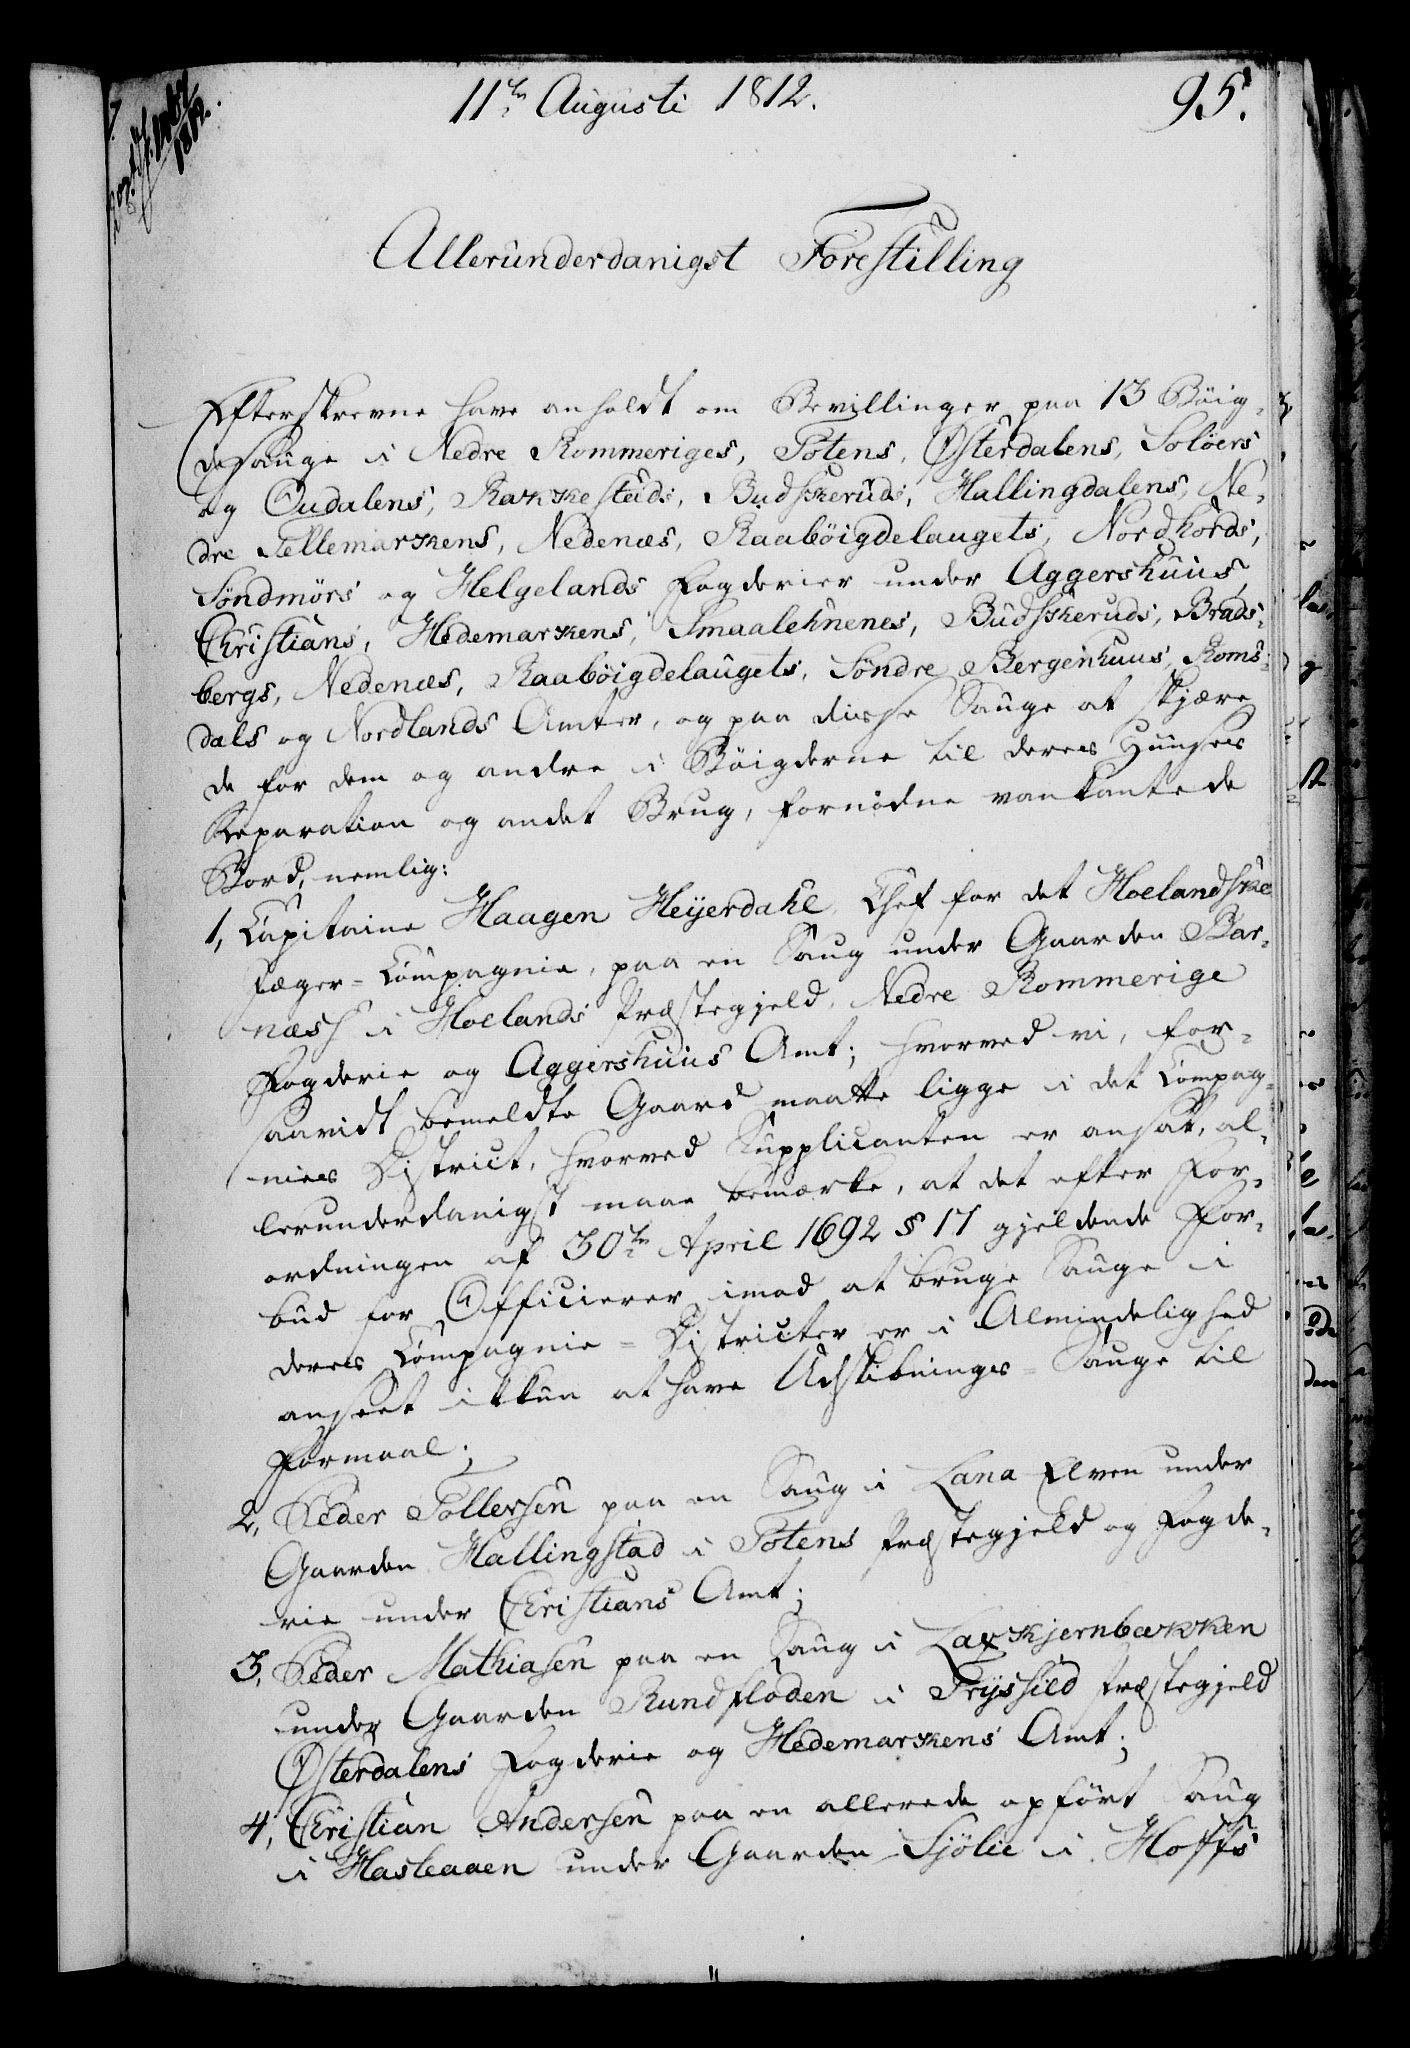 11te Augusti 1812.
95.
1812.
Allerunderdanigst Forestilling
Efterskrevne have anholdt om Bevillinger paa 13 Böig-
desauge i Nedre Rommeriges, Totens, Østerdalens, Soløers
og Oudalens, Rakkestads, Budskeruds, Hallingdalens, Ne-
dre Tellemarkens, Nedenæs, Raabøigdelaugets, Nordhords,
Søndmørs og Helgelands Fogderier under Aggershuus,
Christians, Hedemarkens, Smaalehnenes, Budskeruds, Brads-
bergs, Nedenæs, Raabøigdelaugets, Søndre Bergenhuus, Roms-
dals og Nordlands Amter, og paa disse Sauge at skjære
de for dem og andre i Böigderne til deres Huuses
Reparation og andet Brug, fornødne vankantede
Bord, nemlig:
1, Capitaine Haagen Heyerdahl, Chef for det Hoelandske
Jæger-Compagnie, paa en Saug under Gaarden Bar-
næss i Hoelands Præstegjeld, Nedre Rommerige
Fogderie og Aggershuus Amt; hvorved vi, for-
saavidt bemeldte Gaard maatte ligge i det Compag-
nies District, hvorved Supplicanten er ansat, al-
lerunderdanigst maae bemærke, at det efter For-
ordningen af 30te April 1692 § 17 gjeldende For-
bud for Officierer imod at bruge Sauge i
deres Compagnie-Districter er i Almindelighed
anseet ikkun at have Udskibnings-Sauge til
Formaal;
2, Peder Tollersen paa en Saug i Lana Elven under
Gaarden Hallingstad i Totens Præstegjeld og Fogde-
rie under Christians Amt;
3, Peder Mathiasen paa en Saug i Laxkjernbækken
under Gaarden Rundfloden i Trysild Præstegjeld
Østerdalens Fogderie og Hedemarkens Amt;
4, Christian Andersen paa en allerede opført Saug
i Hasleaaen under Gaarden Sjölie i Hoffs